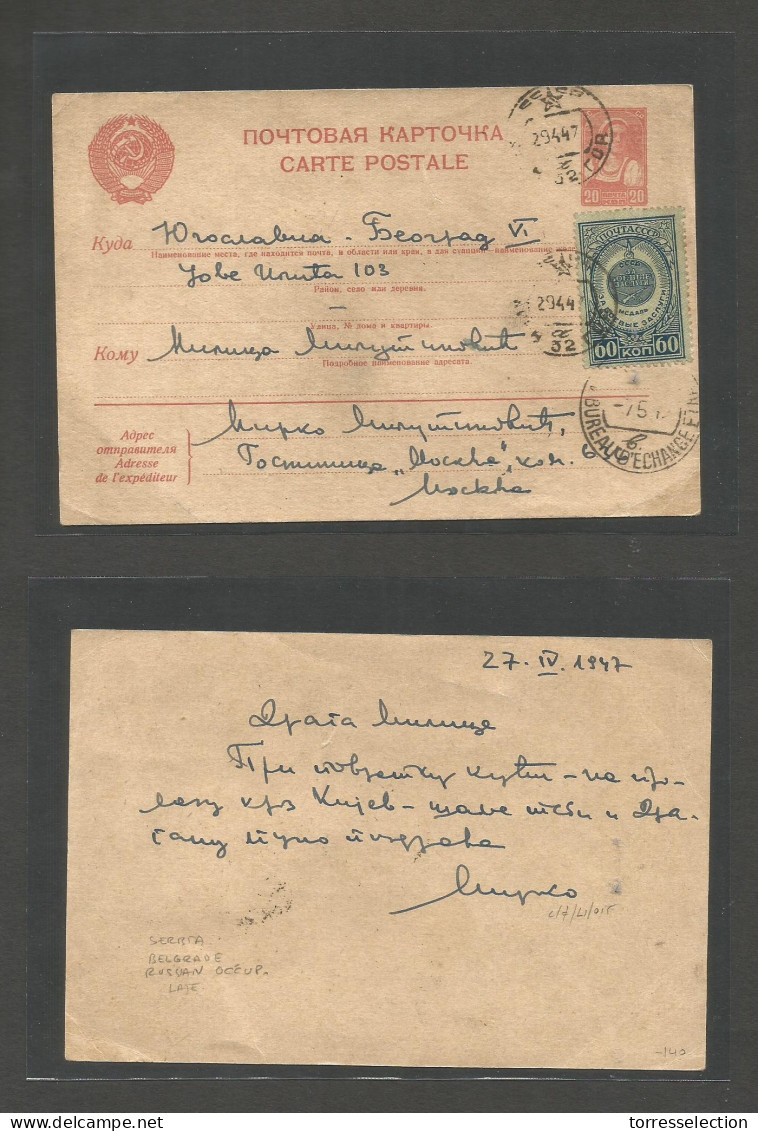 ПОЧТОВАЯ КАРТОЧКА
CARTE POSTALE
29447
32
20 20
Куда Югославиа - Београд VI
Наименование места, где находится почта, и области или края, а для станции - наименование
ПОЧТА СССР
Јове Илића 103
Район, село или деревня.
2944
32
Улица, № дома и квартиры.
60 КОП 60
Кому Милица Милутиновић
Подробное наименование адресата.
Мирко Милутиновић,
Адрес
отправителя
Adresse
de l'expéditeur
Гостиница „Москва", ком.
Москва
-7.5.
BUREAU D'ECHANGE
27. IV. 1947
Драга Милице
При повратку кући - на про-
лазу кроз Кијев - шаље теби и Дра-
гану пуно поздрава
Мирко
SERBIA
BELGRADE
RUSSIAN OCCUP.
LATE
-140
torresselection